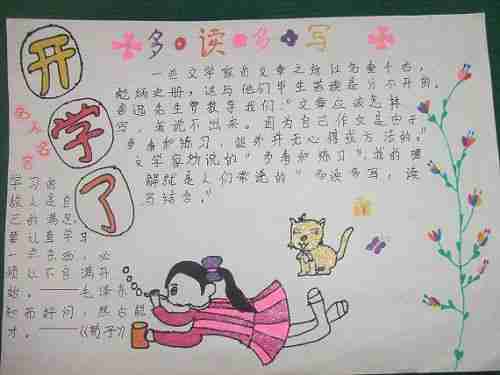 开学了
多·读·多·写
名人名言
一些文学家的文章之所以名垂千古,
彪炳史册,这与他们毕生苦读是分不开的。
鲁迅先生曾教导我们:"文章应该怎样
写,我说不出来。因为自己作文是由于
多看和练习,此外并无心得或方法的。"
文学家劝说的"多看和练习",我的理
解就是人们常说的"多读多写,读
写结合。"
学习的
敌人是自
己的满足,
要认真学习
一些东西,必
须从不自满开
始。——毛泽东
知而好问,然后能
才。——《荀子》